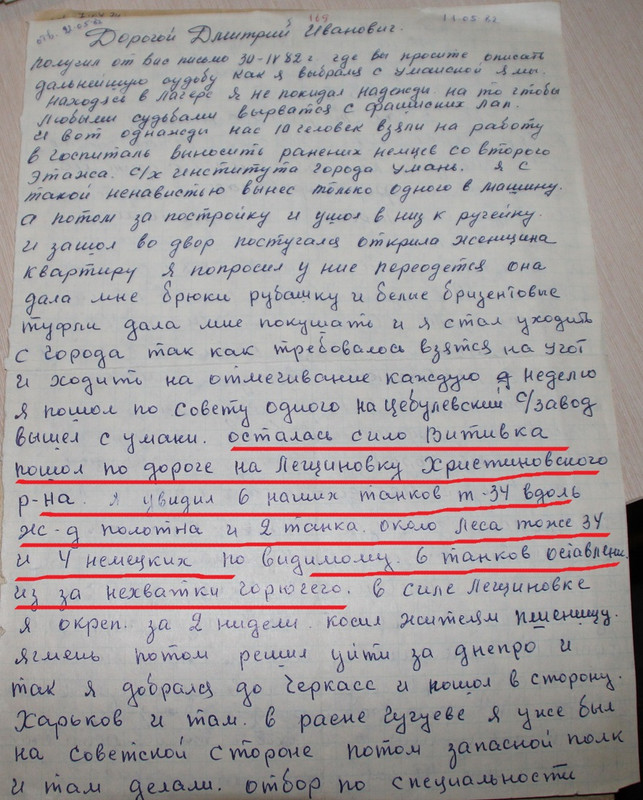 отв. 21.05.82 119 11.05.82
Дорогой Дмитрий Иванович.
Получил от Вас письмо 30-IV 82 г. где вы просите описать
дальнейшую судьбу как я выбрался с Уманской ямы.
Находясь в Лагере я не покидал надежди на то чтобы
Любыми судьбами вырватся с фашиских лап.
И вот однажди нас 10 человек взяли на работу
в госпиталь выносить ранених немцев со второго
этажа. с/х института города Умань. я с
такой ненавистью вынес только одного в машину.
а потом за постройку и ушол в низ к ручейку.
и зашол во двор постугался открила женщина
квартиру я попросил у ние переодется она
дала мне брюки рубашку и белые бризентовые
туфли дала мне покушать и я стал уходить
с города так как требовалось взятся на учот
и ходить на отмечивание каждую неделю
я пошол по совету одного на Цебулевский с/завод
вышел с умани. осталась сило Витивка
пошол по дороге на Лещиновку Христиновского
р-на. я увидил 6 наших танков т-34 вдоль
ж-д полотна и 2 танка. около леса тоже 34
и 4 немецких по видимому. 6 танков оставлени.
из за нехватки горючего. в силе Лещиновке
я окреп. за 2 нидели. косил жителям пшеницу.
ягмень потом решил уйти за днепро и
так я добрался до Черкасс и пошол в сторону.
Харьков и там. в раене Чугуеве я уже был
на советской стороне потом запасной полк
и там делали. отбор по специальности